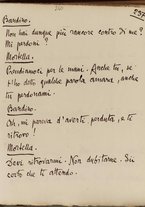 240
237
Bardiero.
Non hai dunque più rancore contro di me?
Mi perdoni?
Mortella.
Perdoniamoci per le mani. Anche tu, se
t'ho detto qualche parola amara, anche
tu, perdonami.
Bardiero.
Oh, mi pareva d'averti perduta, e ti
ritrovo!
Mortella.
Devi ritrovarmi. Non dubitarne. Sii
certo che ti attendo.